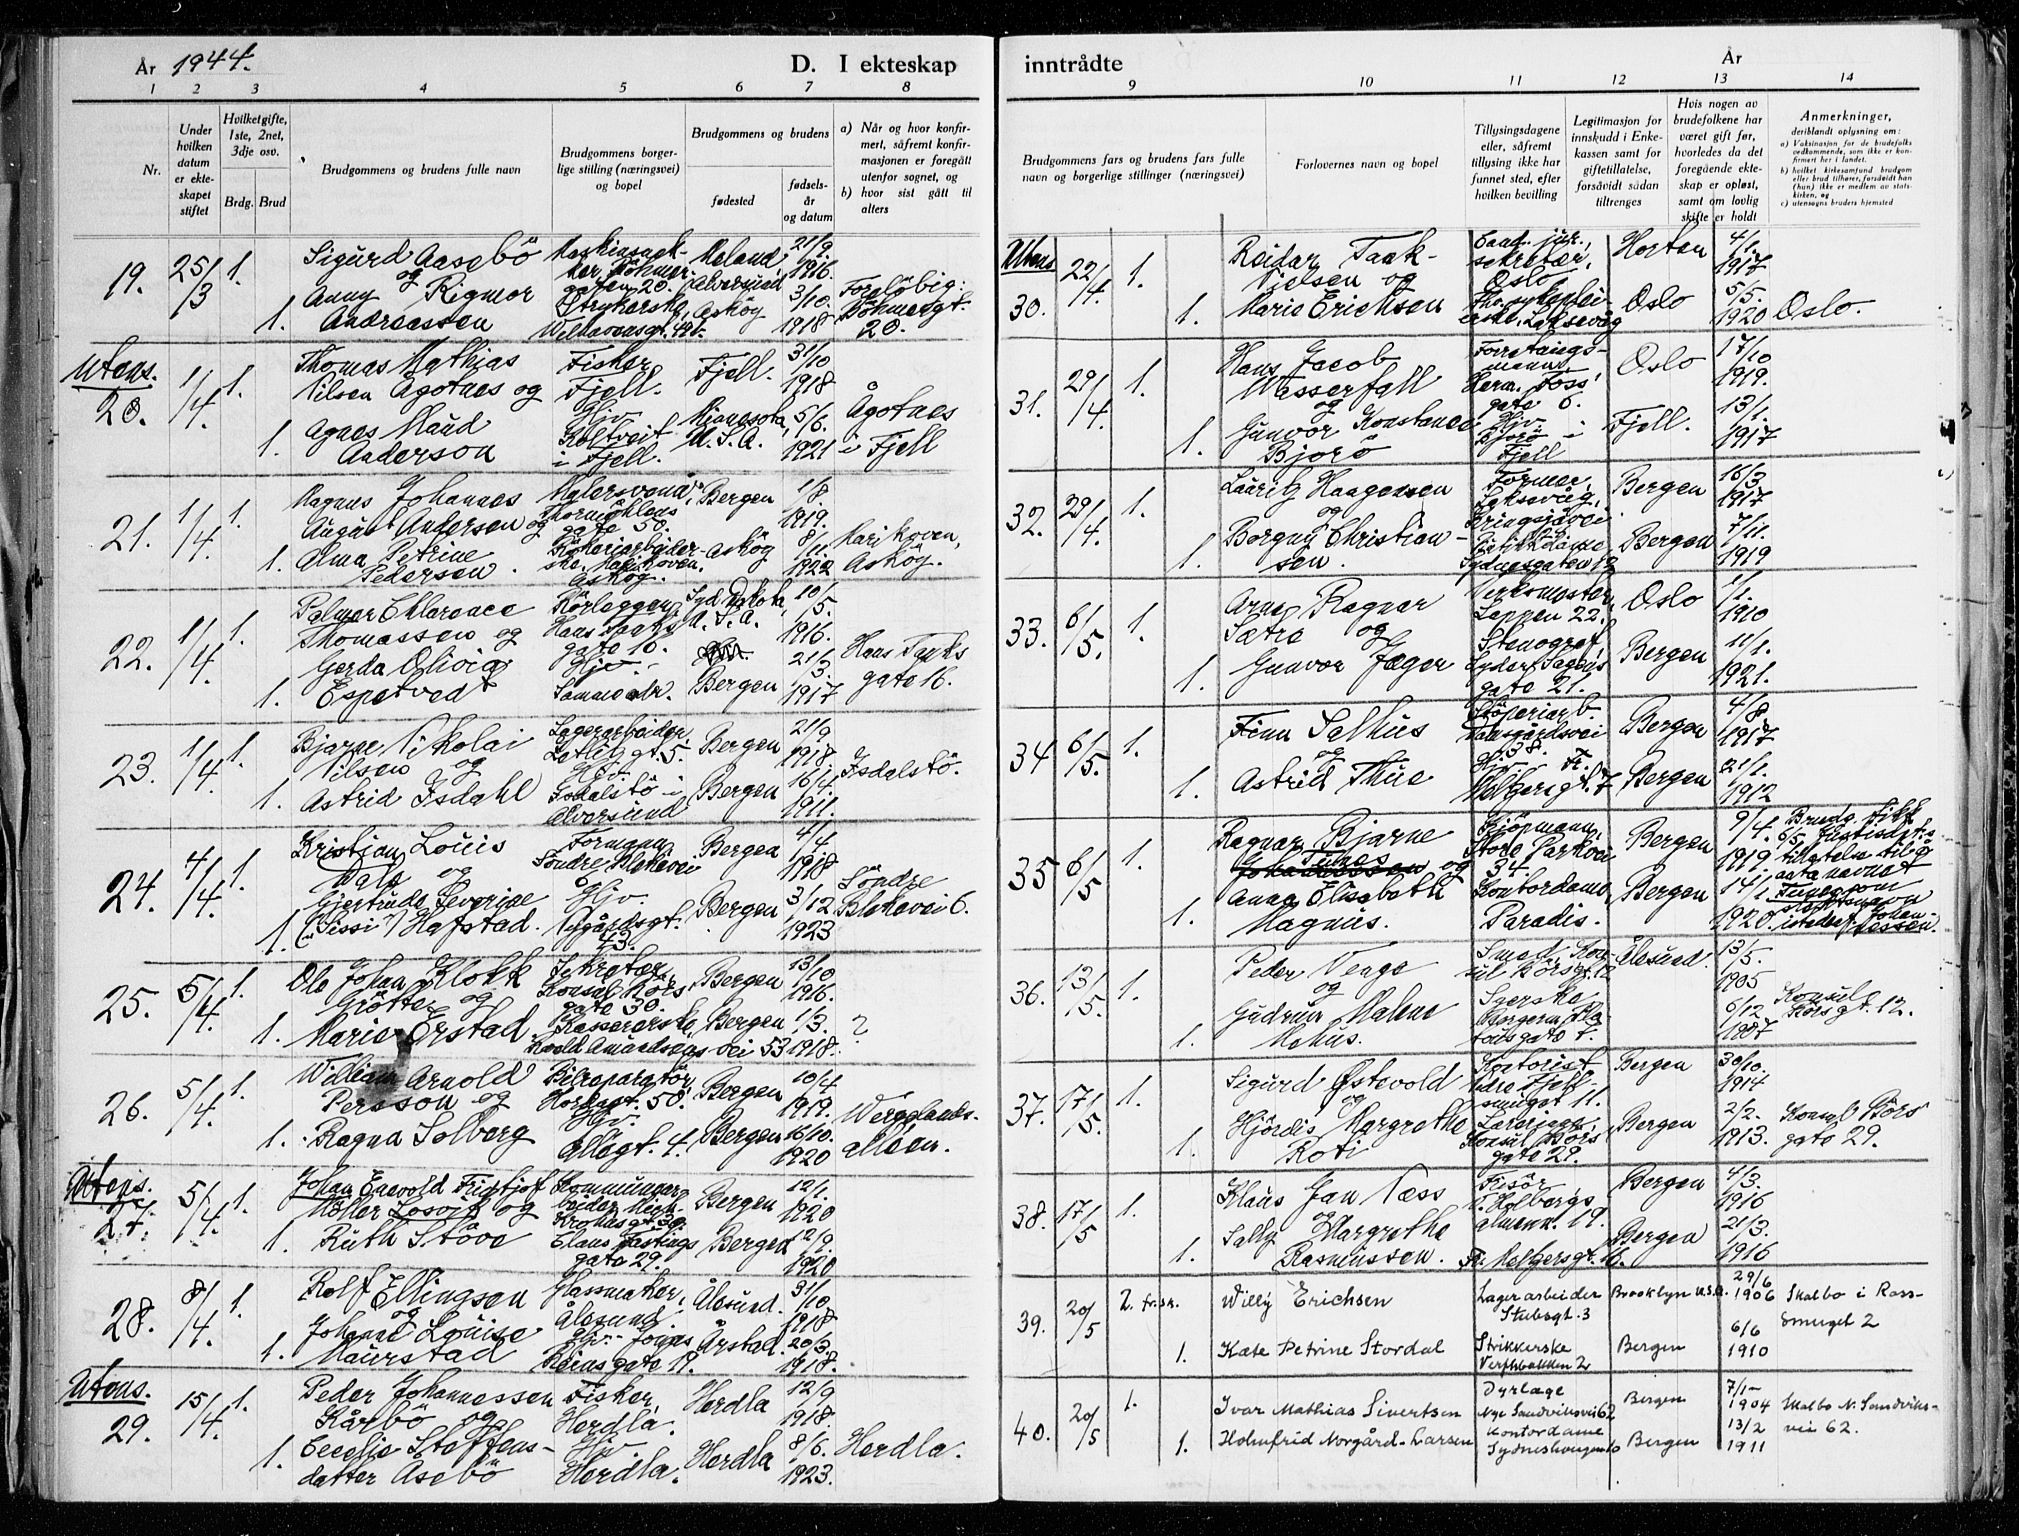 År 1944.
D. I ekteskap
1 2 3 4 5 6 7 8
Nr.
Under hvilken datum er ekteskapet stiftet
Hvilket gifte, 1ste, 2net, 3dje osv.
Brdg. Brud
Brudgommens og brudens fulle navn
Brudgommens borgerlige stilling (næringsvei) og bopel
Brudgommens og brudens
fødested
fødselsår og datum
a) Når og hvor konfirmert, såfremt konfirmasjonen er foregått utenfor sognet, og
b) hvor sist gått til alters
19. 25/3 1. Sigurd Aasebö Meland 21/9
og 1916. Foreløbig:
Anny Rigmor Alversund 3/10.
1. Andreassen Askøy 1918 20.
Utens.
20. 1/4. 1. Thomas Mathias Fisker Fjell. 31/10
Nilsen Ågotnes og Fjell. 1918
Agnes Maud Hjv. 5/6. Ågotnes
1. Anderson Koltveit U.S.A. 1921 i Fjell
i Fjell.
21. 1/4. 1. Magnus Johannes Malersvend, Bergen 1/8
August Andersen og Thormøhlens gate 50. 1919.
1. Alma Petrine Askøy 8/11. Marikoven,
Pedersen. Askøy. 1922 Askøy.
22. 1/4. 1. Palmer Chlarence Rörlegger, Syd Dakota, 10/5.
Thomassen og Hans Tanks U.S.A. 1916.
Gerda Olivia gate 16. Hjv. 21/3. Hans Tanks
1. Espetvedt Samme adr. Bergen 1917 gate 16.
23. 1/4. 1. Bjarne Nikolai Lagerarbeider, Bergen 21/9
Nilsen og 1918.
1. Astrid Isdahl Hjv. Isdalstö i Bergen 16/4. Isdalstö.
Alversund 1911.
24. 4/4. 1. Kristian Louis Formann Bergen 4/1
Dale og Söndre Blekevei 6 1918
Gjertrude Severine Hjv. Söndre
1. ("Sissi") Hafstad. Nygårdsgt. 43. Bergen 3/12 1923 Blekevei 6.
25. 5/4. 1. Ole Johan Klokk Sekretær, Bergen 13/10
Grötte og Konsul Börs gate 30. 1916.
1. Marie Erstad Kassererske, Bergen 1/3. ?
Roald Amundsens vei 53 1918.
26. 5/4. 1. William Arnold Bilreparatör, Bergen 10/4
Persson og 50. 1919.
1. Ragna Solberg Hjv. Allégt. 4. Bergen 16/10. Wergelands-
1920 alléen.
Utens.
27. 5/4. 1. Johan Enevold Fridtjof Kommunearbeider Bergen 12/1.
Møller Losvik og Mich. Krohns gt. 39. 1920
1. Ruth Støve Claus Fastings gate 29. Bergen 12/9. 1920
28. 8/4. 1. Rolf Ellingsen Glassmaker, Ålesund. 31/10
og Ålesund. 1918
Johanne Louise Hjv. Jonas Årstad. 20/3.
1. Maurstad Reins gate 19. 1918.
Utens.
29. 15/4. 1. Peder Johannessen Fisker, Herdla 12/9
Kårbö og Herdla. 1918.
1. Cecelie Steffens- Hjv. Herdla 8/6. Herdla.
datter Asebö Herdla. 1923.
inntrådte År
9 10 11 12 13 14
Brudgommens fars og brudens fars fulle navn og borgerlige stillinger (næringsvei)
Forlovernes navn og bopel
Tillysingsdagene eller, såfremt tillysing ikke har funnet sted, efter hvilken bevilling
Legitimasjon for innskudd i Enkekassen samt for giftetillatelse, forsåvidt sådan tiltrenges
Hvis nogen av brudefolkene har været gift før, hvorledes da det foregående ekteskap er opløst, samt om lovlig skifte er holdt
Anmerkninger,
deriblandt oplysning om:
a) Vaksinasjon for de brudefolks vedkommende, som ikke er konfirmert her i landet.
b) hvilket kirkesamfund brudgom eller brud tilhører, forsåvidt han (hun) ikke er medlem av statskirken, og
c) utensogns bruders hjemsted
Utens.
30. 22/4. 1. Reidar Faak- Cand. jur., Horten 4/1.
Nielsen og sekretær, Oslo 1917
1. Marie Erichsen Laksevåg Oslo 5/5. 1920 Oslo.
31. 29/4. 1. Hans Jacob Forretnings- Oslo 17/10
Wasserfall mann, Herm. Foss' 1919.
og gate 6.
1. Gunvor Konstance Hjv. Fjell. 13/1.
Bjorö Bjorö i Fjell 1917
32. 29/4. 1. Lauritz Haagensen Former, Bergen 16/3
og Laksevåg, 1917
1. Borgny Christian- Bergen 7/11.
sen. Sydnesgaten 12 1919
33. 6/5. 1. Arne Ragnar Verksmester, Oslo 1/1.
Sætre og Lappen 22. 1910
1. Gunvor Jæger Stenograf, Lyder Sagens gate 21. Bergen 11/1. 1921.
34 6/5. 1. Finn Salhus Stöperiarb. Bergen 4/8
og Damsgårdsvei 138. 1917
1. Astrid Thue Hjv. Fr. Melbersgt. 7 Bergen 21/1. 1912
35 6/5 1. Ragnar Bjarne Kjöpmann, Bergen 9/4. Brudg. fikk
Tunes Store Parkvei 34 1919. 6/5 Justisdpt.s
Johannessen og tillatelse til å
Anna Elisabeth Kontordame, Bergen 14/1. anta navnet
1. Magnus. Paradis. 1920. Tunes som slektsnavn istedetf. Johannessen.
36. 13/5. 1. Peder Venge Smed, Konsul Börsgt. 12 Ålesund. 13/5. 1905
og
1. Gudrun Malene Syerske 6/12 Konsul
Mehus. 1907 Börsgt. 12.
37. 17/5. 1. Sigurd Østevold Kontorist Bergen 30/10.
og smuget 11. 1914
1. Hjördis Margrethe Konsul Börs Bergen 2/2. Konsul Börs
Roti gate 29. 1913. gate 29.
38. 17/5 1. Klaus Jan Næss Frisör, Bergen 4/3.
og L. Holbergs 1916
1. Sally Margrethe almenn. 19. Bergen 21/3.
Rasmussen. Fr. Melbersgt. 16. 1916
39. 20/5 2. fr.sk. Willy Erichsen Lagerarbeider Brooklyn U.S.A. 29/6 1906 Skalbo i Ross-
Stubsgt. 3 smuget 2
1. Kate Petrine Stordal Strikkerske Bergen 6/6
Verftsbakken 2 1910
40. 20/5 1. Ivar Mathias Sivertsen Dyrlæge Bergen 7/1- 1904 Skalbo N. Sandviks-
Nye Sandviksvei 62 vei 62.
1. Holmfrid Norgård-Larsen Kontordame Bergen 13/2
Sydneshaugen 10 1911